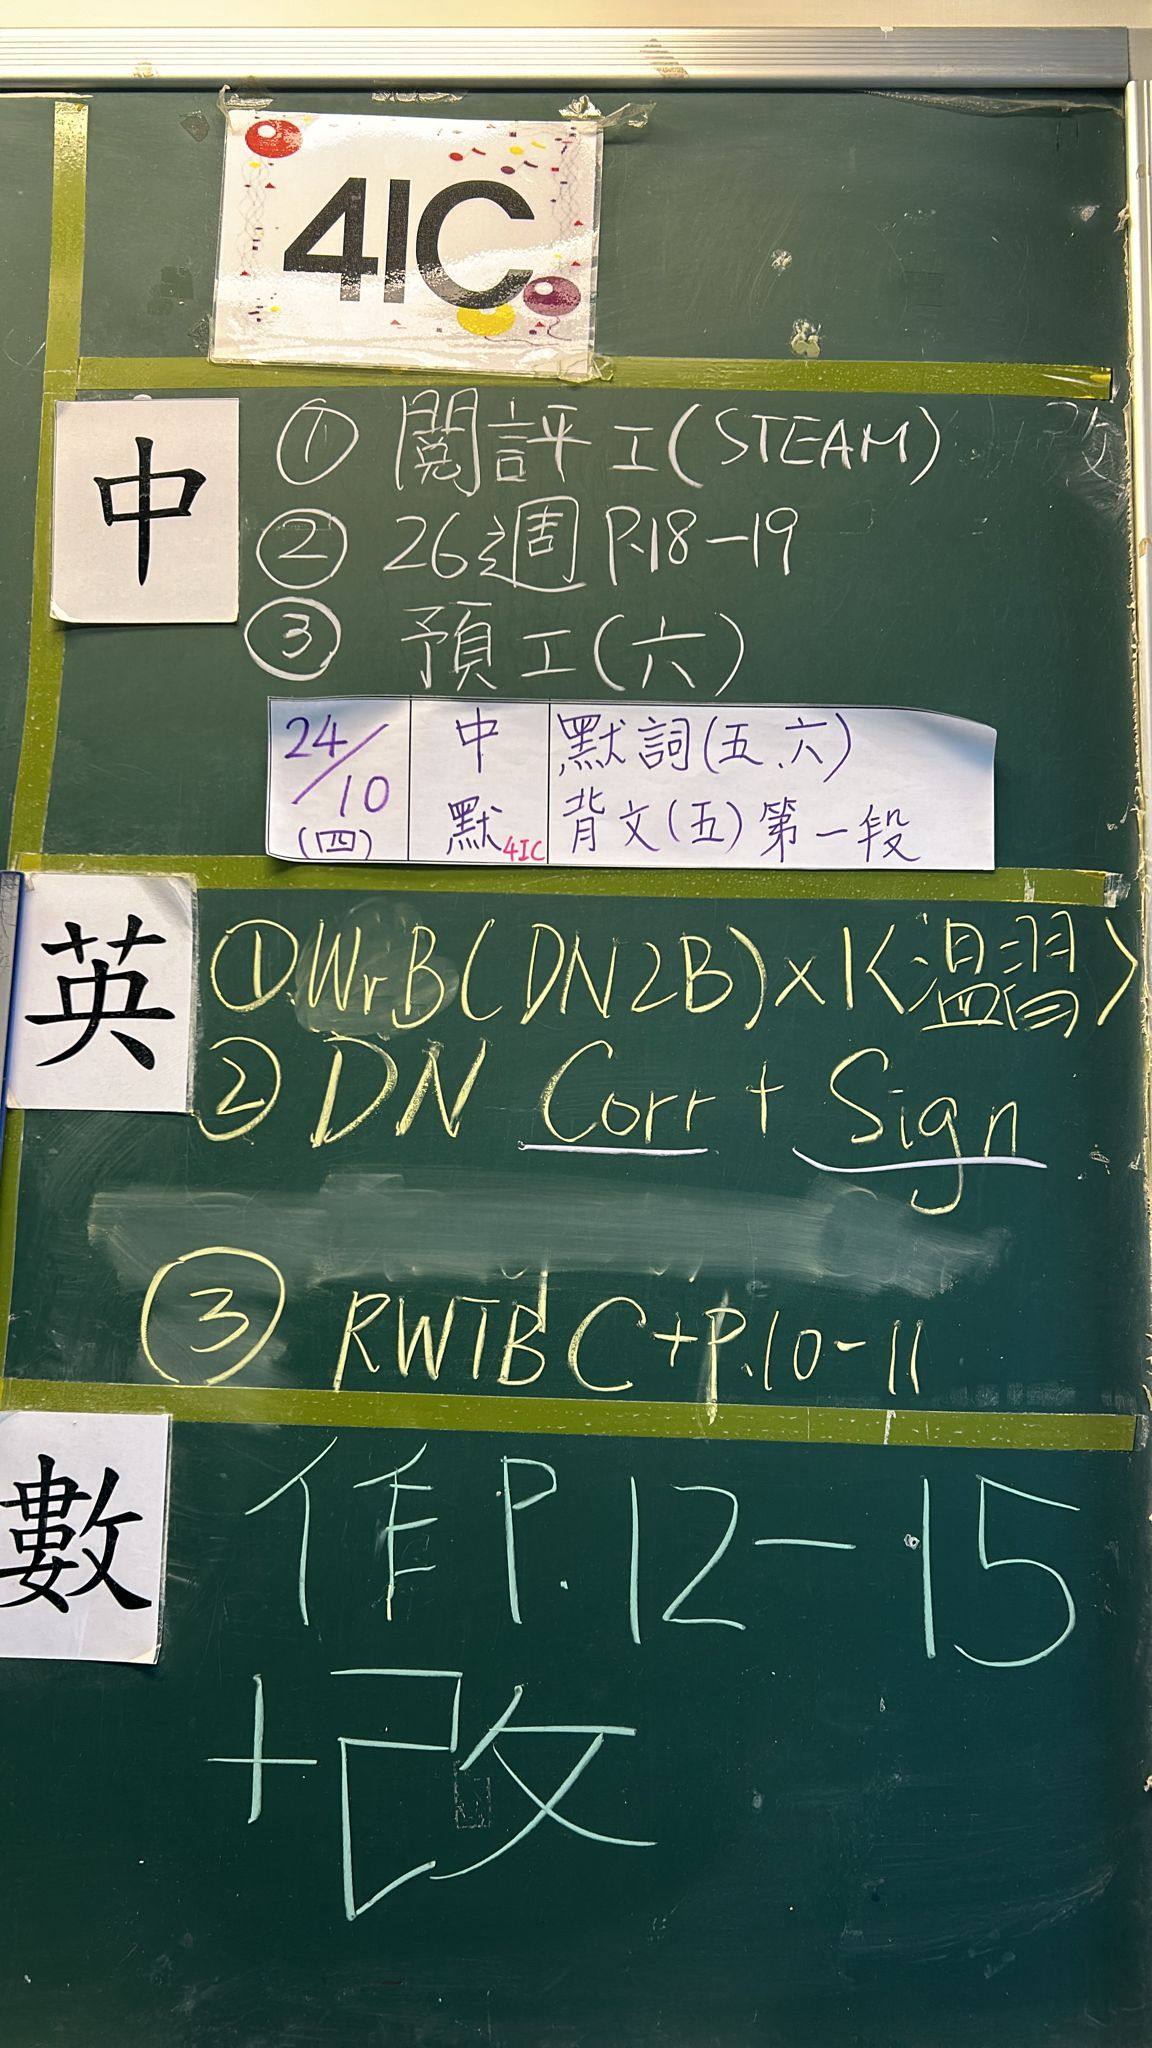 4IC
中
① 閱評工(STEAM)
② 26週 P.18-19
③ 預工(六)
24/10 (四)
中默 4IC
默詞(五、六)
背文(五)第一段
英
①.WrB(DN2B)x1<溫習>
② DN Corr + Sign
③ RWTB C+p.10-11
數
作P.12-15
+改